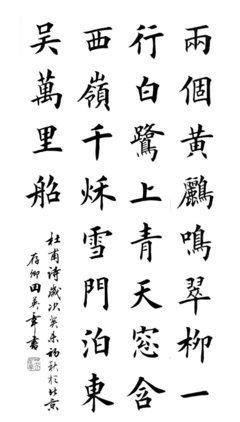 兩個黃鸝鳴翠柳一
行白鷺上青天窓含
西嶺千秌雪門泊東
吳萬里船
杜甫詩歲次癸未初秋於北京
存卿田英章書